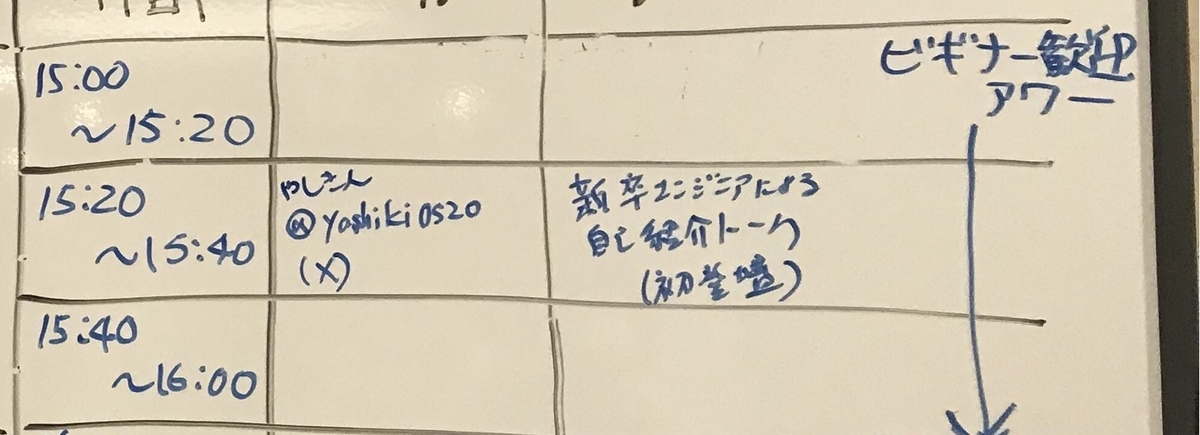 ビギナー歓迎
アワー
15:00
~15:20
15:20
~15:40
やしきん
@yashiki0520
(X)
新卒エンジニアによる
自己紹介トーク
(初登壇)
15:40
~16:00